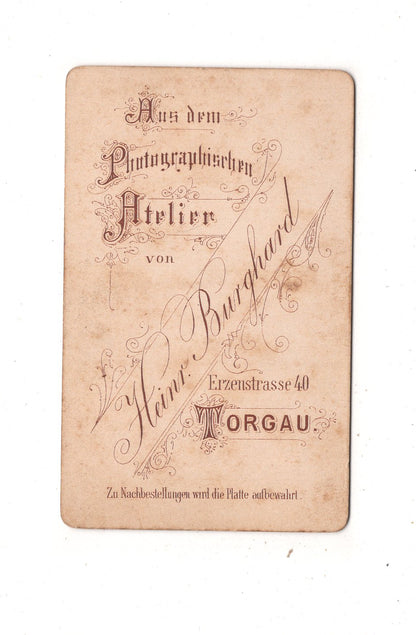 Aus dem
Photographischen
Atelier
von
Heinr. Burghard
Erzenstrasse 40
TORGAU.
Zu Nachbestellungen wird die Platte aufbewahrt.